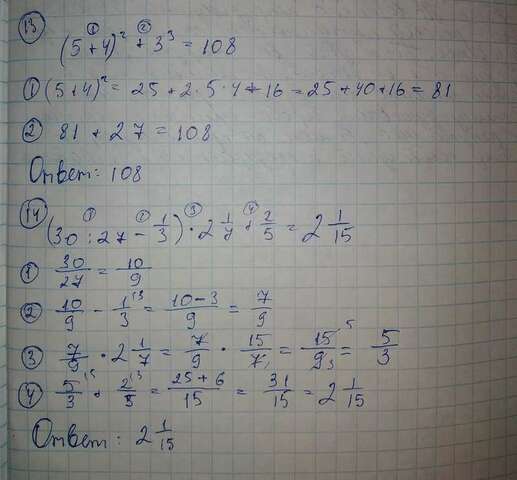 13
(5 + 4)² + 3³ = 108
① (5+4)² = 25 + 2 · 5 · 4 + 16 = 25 + 40 + 16 = 81
② 81 + 27 = 108
Ответ: 108
14
(30 : 27 - 1/3) · 2 1/7 + 2/5 = 2 1/15
① 30/27 = 10/9
② 10/9 - 1/3 = (10-3)/9 = 7/9
③ 7/9 · 2 1/7 = 7/9 · 15/7 = 15/9 = 5/3
④ 5/3 + 2/5 = (25+6)/15 = 31/15 = 2 1/15
Ответ: 2 1/15